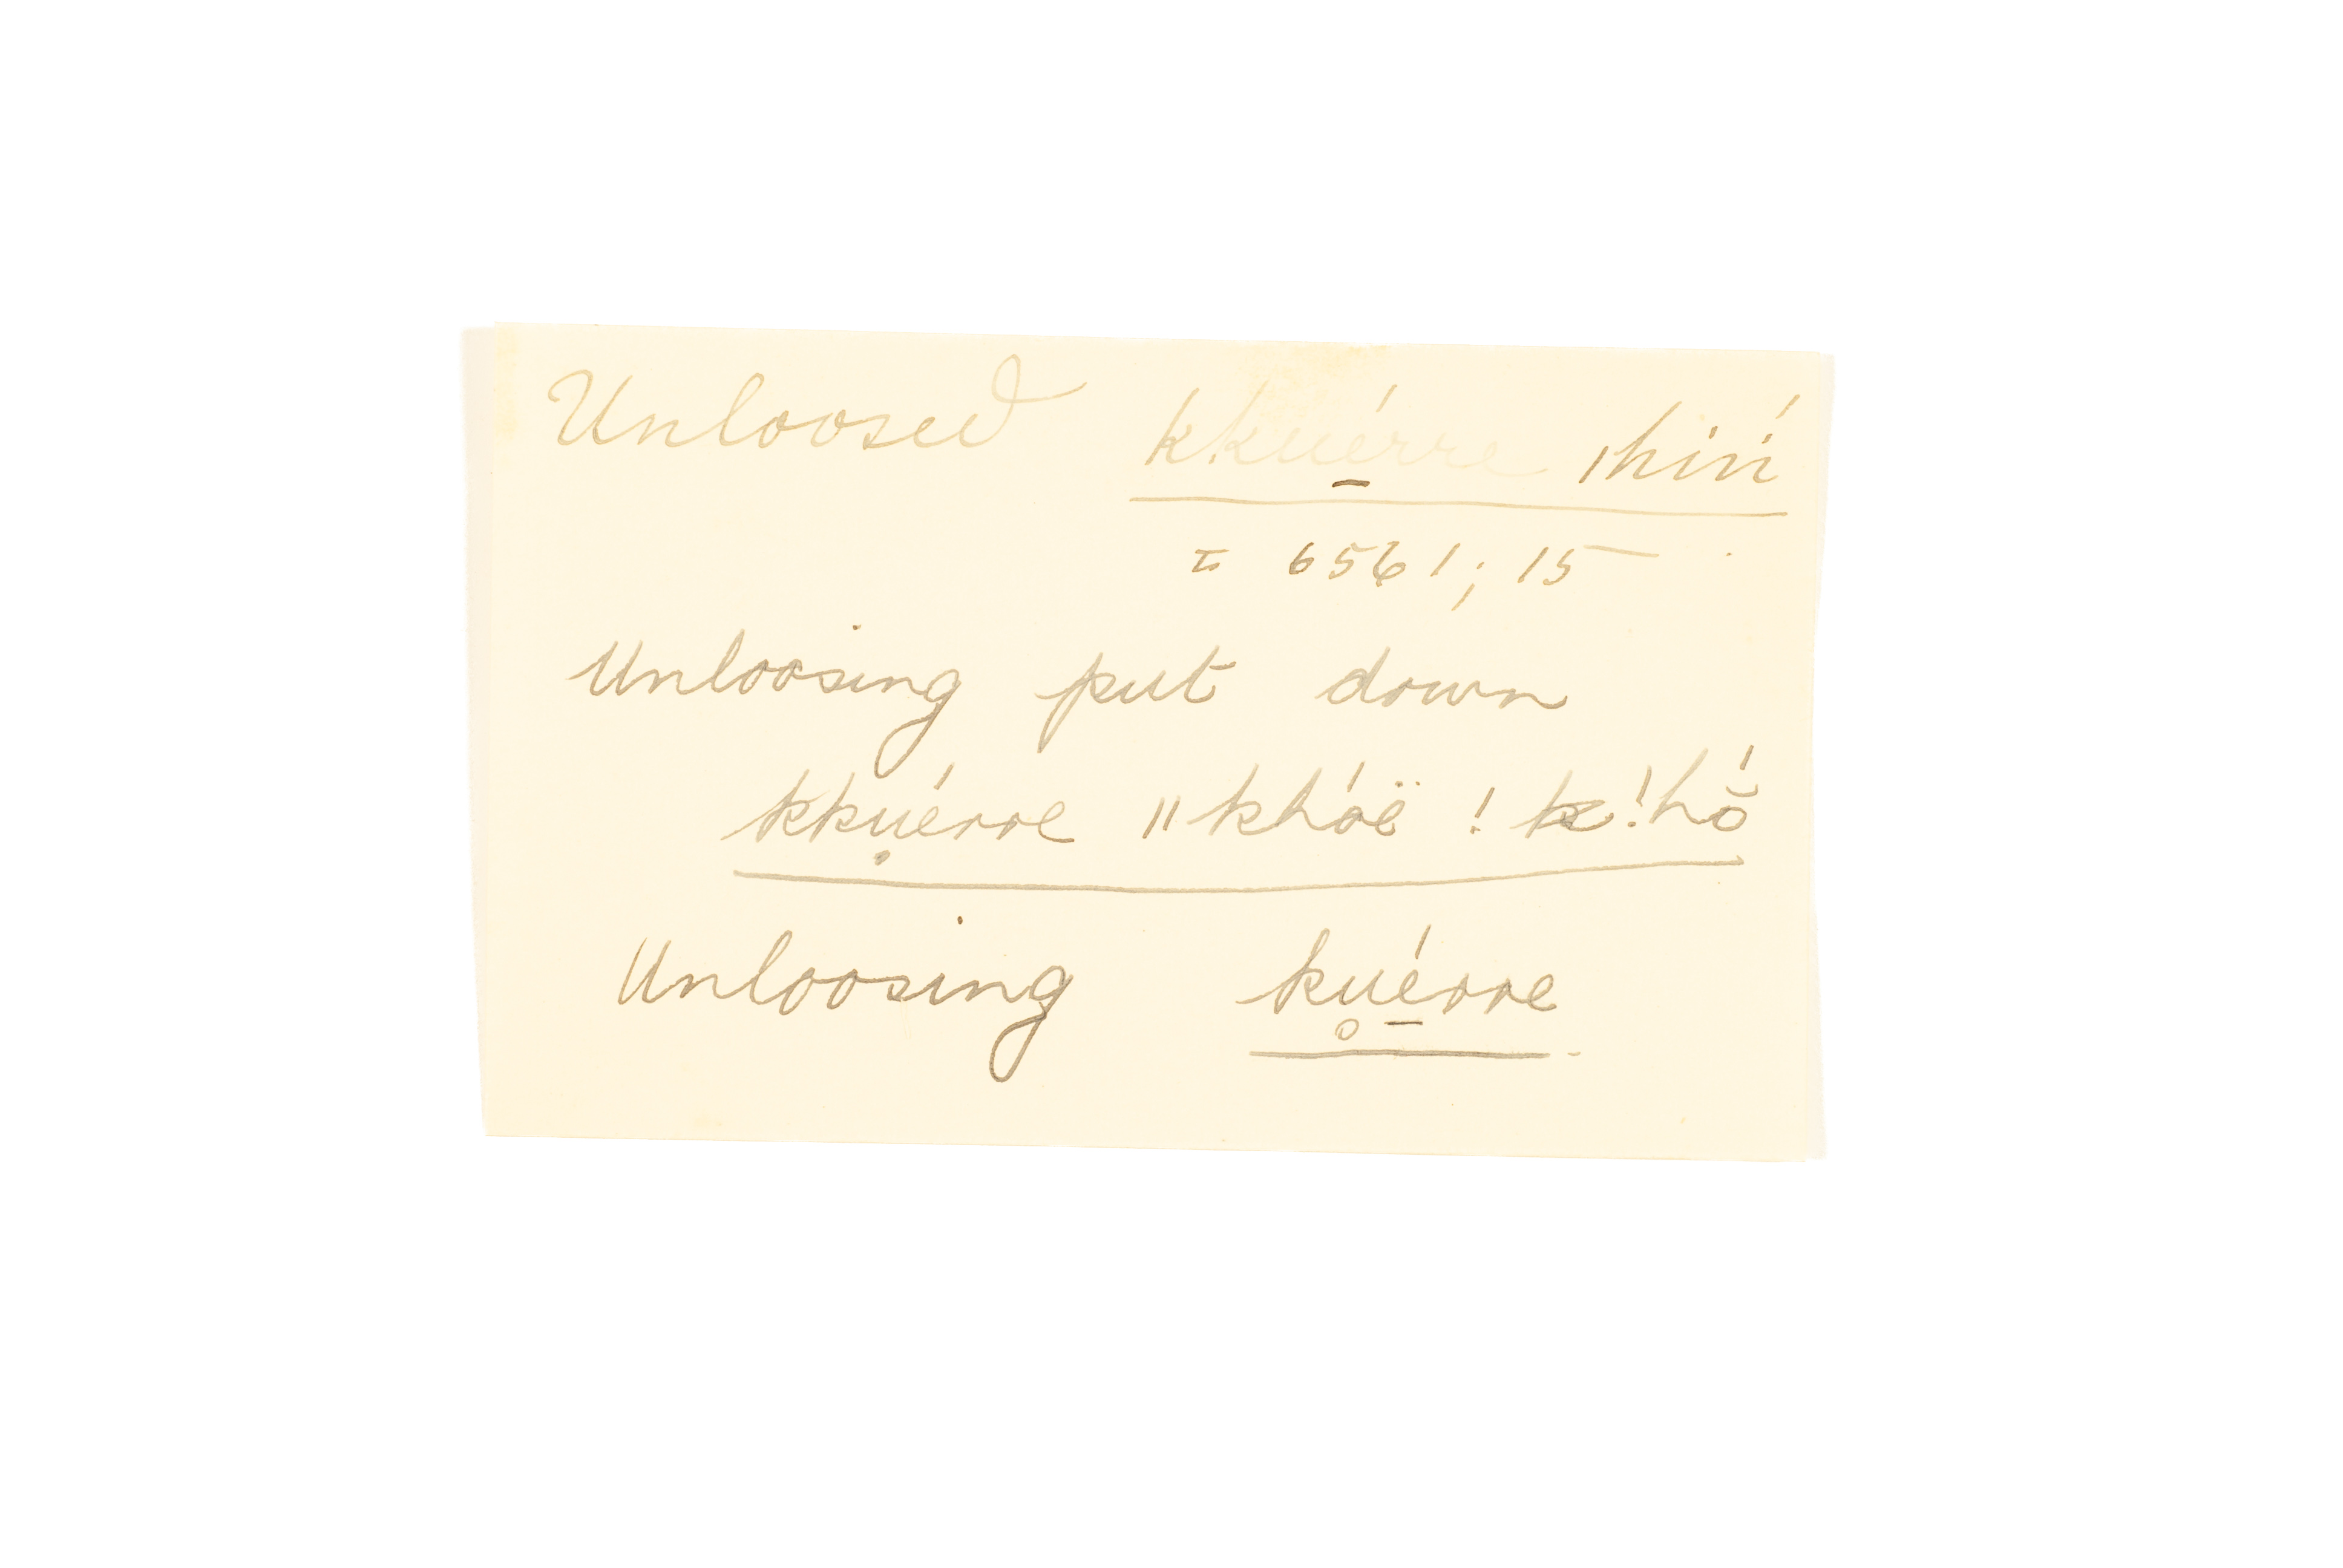 Unloosed kkué̠rre ǀhíń
= 6561; 15
Unloosing put down
kkụérre ǁkhóë ! k ǃhŏ́
Unloosing ku̥é̠rre.